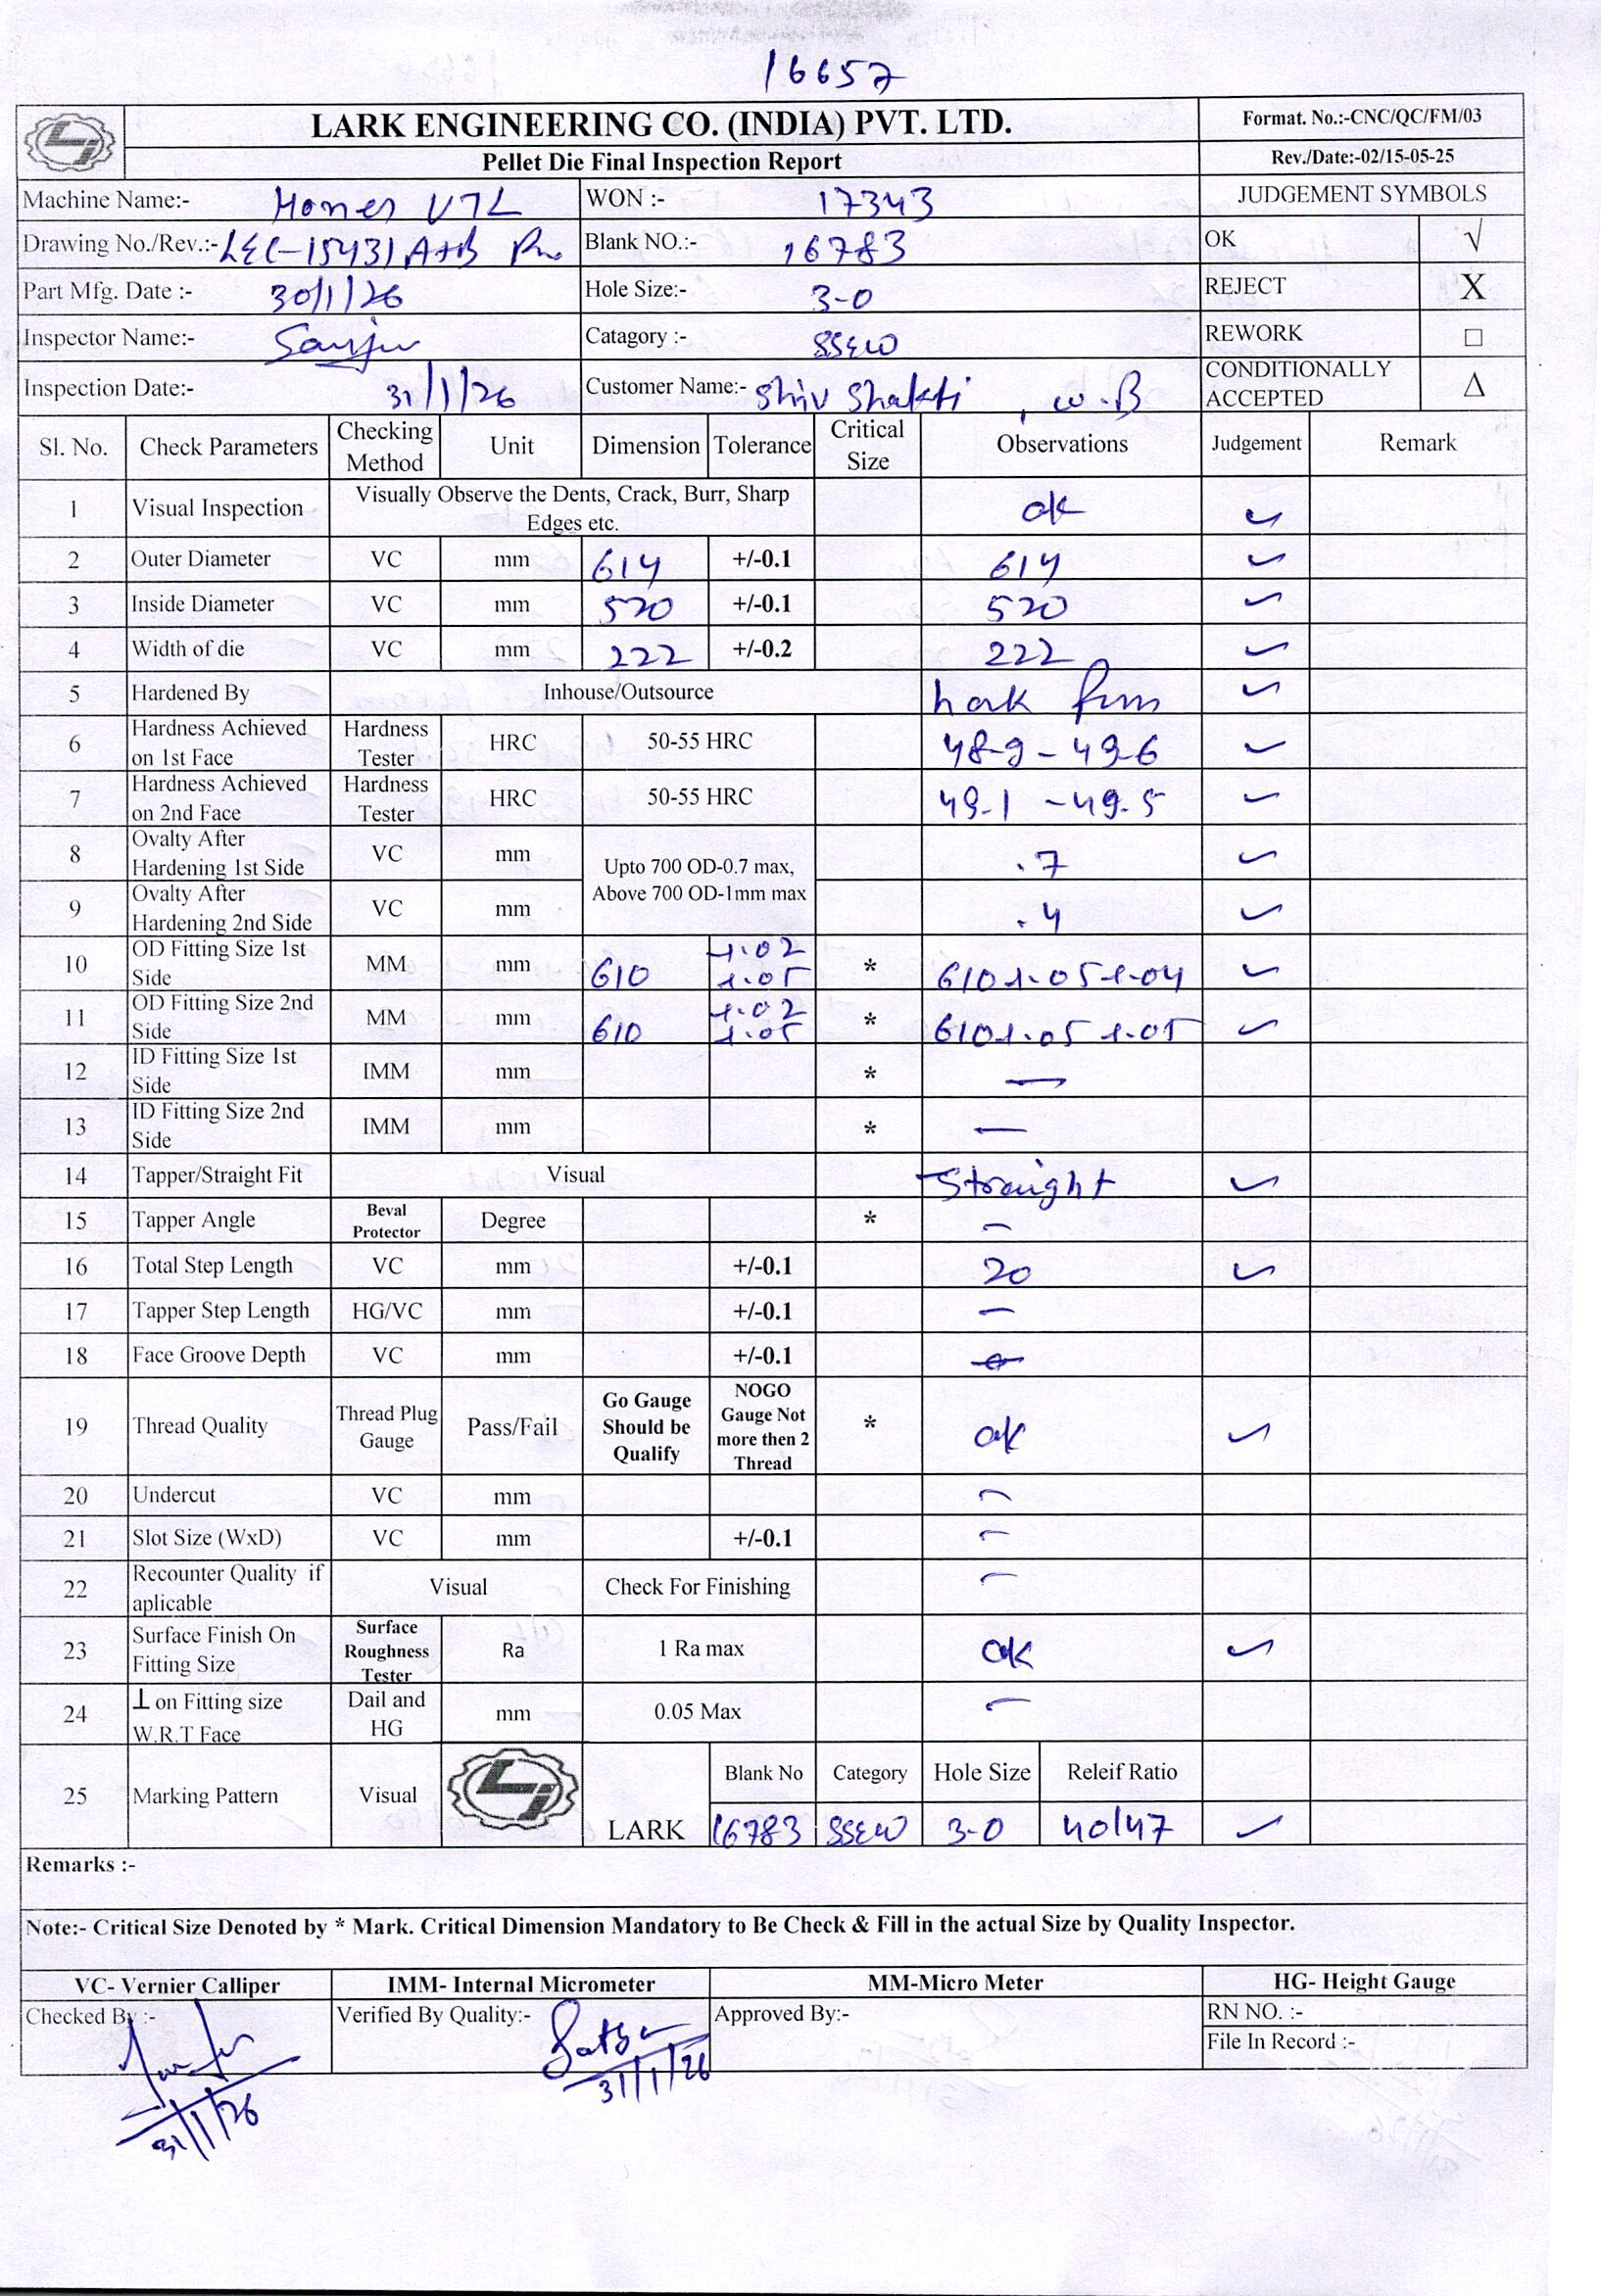 16657
LARK ENGINEERING CO. (INDIA) PVT. LTD.
Format. No.:-CNC/QC/FM/03
Pellet Die Final Inspection Report
Rev./Date:-02/15-05-25
Machine Name:- VTL WON :- 17343 JUDGEMENT SYMBOLS
Drawing No./Rev.:- LEC-15431 A+B Blank NO.:- 16783 OK √
Part Mfg. Date :- 30/1/26 Hole Size:- 3-0 REJECT X
Inspector Name:- Sanju Catagory :- SSEW REWORK □
Inspection Date:- 31/1/26 Customer Name:- Shiv Shakti , W.B CONDITIONALLY ACCEPTED Δ
Sl. No. Check Parameters Checking Method Unit Dimension Tolerance Critical Size Observations Judgement Remark
1 Visual Inspection Visually Observe the Dents, Crack, Burr, Sharp Edges etc. ok ✓
2 Outer Diameter VC mm 614 +/-0.1 614 ✓
3 Inside Diameter VC mm 520 +/-0.1 520 ✓
4 Width of die VC mm 222 +/-0.2 222 ✓
5 Hardened By Inhouse/Outsource ✓
6 Hardness Achieved on 1st Face Hardness Tester HRC 50-55 HRC 48-9 - 49-6 ✓
7 Hardness Achieved on 2nd Face Hardness Tester HRC 50-55 HRC 49-1 - 49.5 ✓
8 Ovalty After Hardening 1st Side VC mm Upto 700 OD-0.7 max, Above 700 OD-1mm max .7 ✓
9 Ovalty After Hardening 2nd Side VC mm .4 ✓
10 OD Fitting Size 1st Side MM mm 610 +.02 +.05 * 610+.05 +.04 ✓
11 OD Fitting Size 2nd Side MM mm 610 +.02 +.05 * 610+.05 +.05 ✓
12 ID Fitting Size 1st Side IMM mm * —
13 ID Fitting Size 2nd Side IMM mm * —
14 Tapper/Straight Fit Visual Straight ✓
15 Tapper Angle Beval Protector Degree * —
16 Total Step Length VC mm +/-0.1 20 ✓
17 Tapper Step Length HG/VC mm +/-0.1 —
18 Face Groove Depth VC mm +/-0.1 —
19 Thread Quality Thread Plug Gauge Pass/Fail Go Gauge Should be Qualify NOGO Gauge Not more then 2 Thread * ok ✓
20 Undercut VC mm —
21 Slot Size (WxD) VC mm +/-0.1 —
22 Recounter Quality if aplicable Visual Check For Finishing —
23 Surface Finish On Fitting Size Surface Roughness Tester Ra 1 Ra max ok ✓
24 ⊥ on Fitting size W.R.T Face Dail and HG mm 0.05 Max —
25 Marking Pattern Visual LARK Blank No Category Hole Size Releif Ratio
16783 SSEW 3-0 40/47 ✓
Remarks :-
Note:- Critical Size Denoted by * Mark. Critical Dimension Mandatory to Be Check & Fill in the actual Size by Quality Inspector.
VC- Vernier Calliper IMM- Internal Micrometer MM-Micro Meter HG- Height Gauge
Checked By :- Verified By Quality:- Approved By:- RN NO. :-
File In Record :-
31/1/26
31/1/26